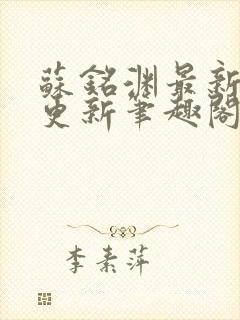 蘇銘淵最新
更新筆趣閣
李素萍